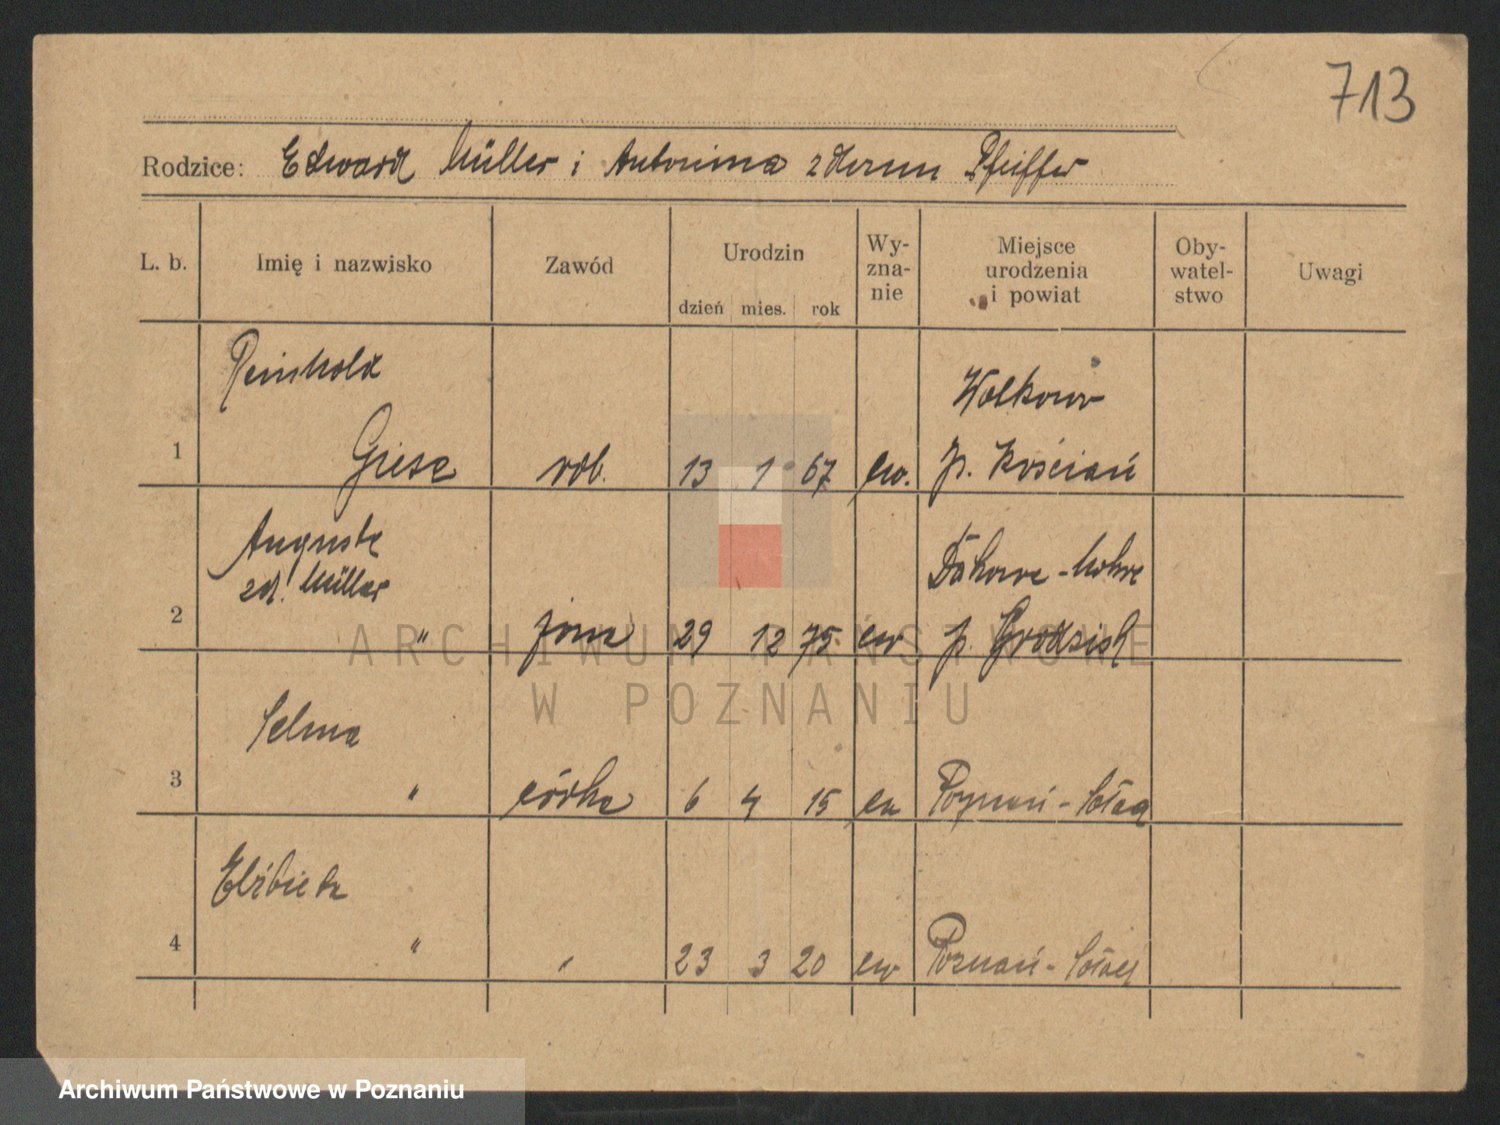 713
Rodzice: Edward Müller i Antonina z domu Pfeiffer
L. b. Imię i nazwisko Zawód Urodzin dzień mies. rok Wy-zna-nie Miejsce urodzenia i powiat Oby-watel-stwo Uwagi
Reinhold Wolkowo
1 Giese rob. 13 1 67 ew. p. Kościań
Augusta
zd. Müller Dakowe-Mokre
2 " żona 29 12 75 ew p. Grodzisk
Selma
3 " córka 6 4 15 ew Poznań-Sołacz
Elżbieta
4 " " 23 3 20 ew Poznań-Sołacz
ARCHIWUM PAŃSTWOWE
W POZNANIU
Archiwum Państwowe w Poznaniu